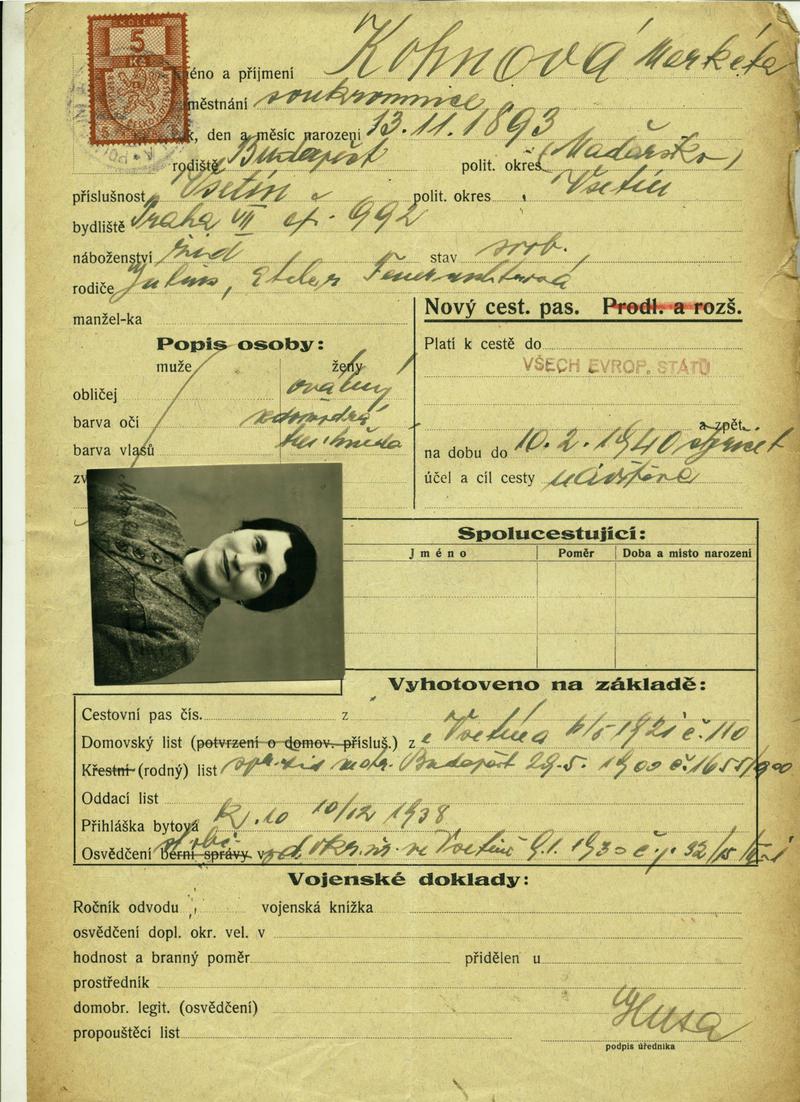 KOLEK
5
Kč
Jméno a příjmení Kohnová Markéta
zaměstnání soukromnice
rok, den a měsíc narození 13. 11. 1893
rodiště Budapešt polit. okres (Maďarsko)
příslušnost Vsetín polit. okres Vsetín
bydliště Praha VII čp. 992
náboženství žid stav svob.
rodiče Julius, Etel
manžel-ka
Nový cest. pas. Prodl. a rozš.
Popis osoby:
muže ženy
obličej oválný
barva očí
barva vlasů
Platí k cestě do
VŠECH EVROP. STÁTŮ
a zpět
na dobu do 10. 2. 1940
účel a cíl cesty návštěva
Spolucestující:
Jméno Poměr Doba a místo narození
Vyhotoveno na základě:
Cestovní pas čís. z
Domovský list (potvrzení o domov. přísluš.) z Vsetína 6/5 1921 č. 110
Křestní (rodný) list Budapešt 29.5. 1900 č. 1655/900
Oddací list
Přihláška bytová R. 10 10/12 1938
Osvědčení berní správy v ve Vsetíně 9.1. 1930
Vojenské doklady:
Ročník odvodu vojenská knížka
osvědčení dopl. okr. vel. v
hodnost a branný poměr přidělen u
prostředník
domobr. legit. (osvědčení)
propouštěcí list
Husa
podpis úředníka